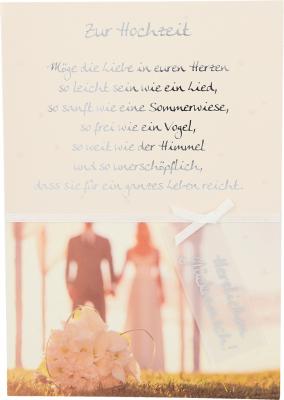 Zur Hochzeit
Möge die Liebe in euren Herzen
so leicht sein wie ein Lied,
so sanft wie eine Sommerwiese,
so frei wie ein Vogel,
so weit wie der Himmel
und so unerschöpflich,
dass sie für ein ganzes Leben reicht.
Herzlichen
Glückwunsch!